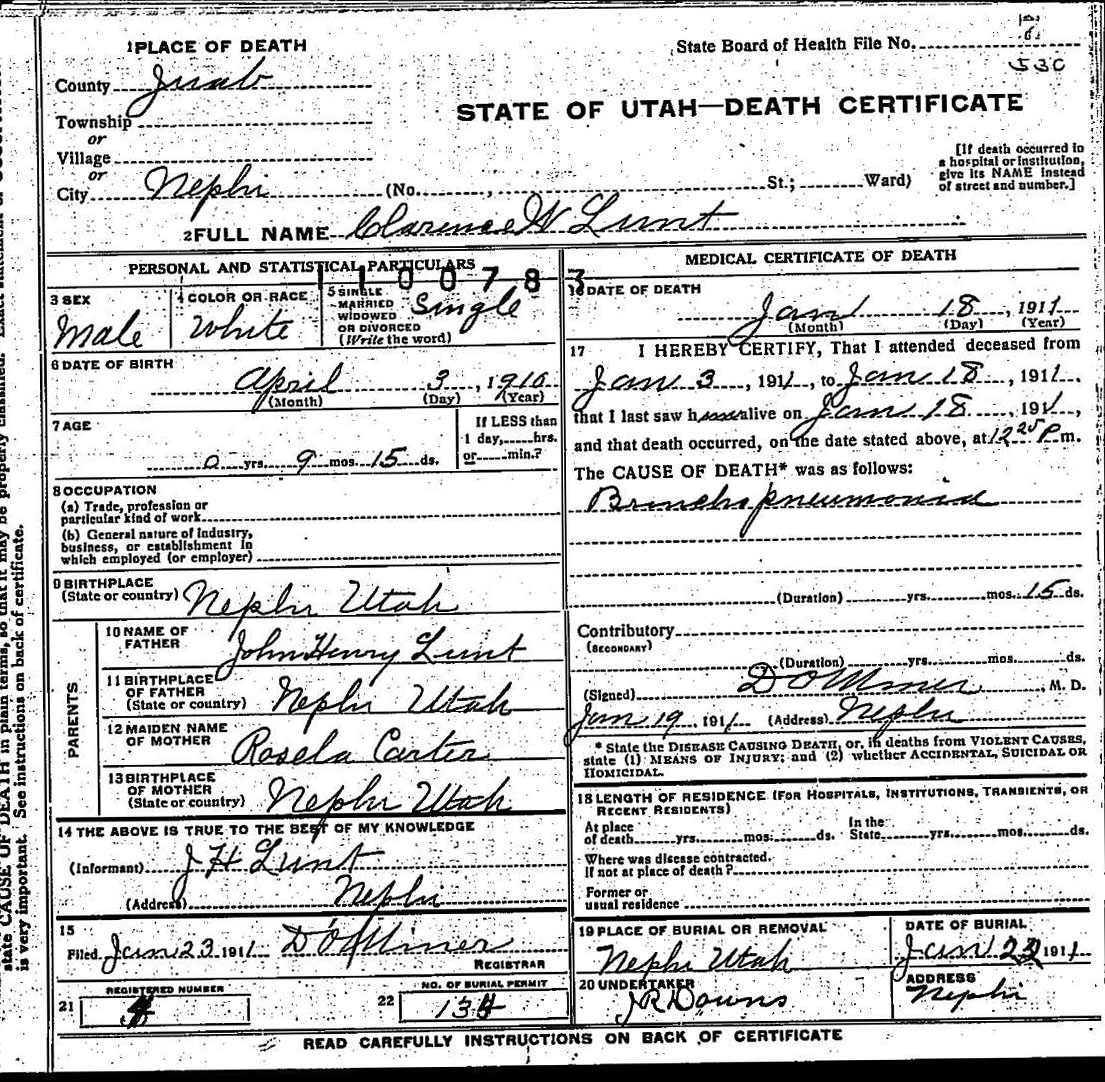 1 PLACE OF DEATH
State Board of Health File No.
530
County Juab
STATE OF UTAH—DEATH CERTIFICATE
Township
or
Village
or
City Nephi (No. , St.; Ward)
[If death occurred in
a hospital or institution,
give its NAME instead
of street and number.]
2 FULL NAME Clarence W Lunt
PERSONAL AND STATISTICAL PARTICULARS
1100783
3 SEX
Male
4 COLOR OR RACE
White
5 SINGLE
MARRIED
WIDOWED
OR DIVORCED
(Write the word)
Single
6 DATE OF BIRTH
April 3, 1910
(Month) (Day) (Year)
7 AGE
0 yrs. 9 mos. 15 ds.
If LESS than
1 day, hrs.
or min.?
8 OCCUPATION
(a) Trade, profession or
particular kind of work
(b) General nature of industry,
business, or establishment in
which employed (or employer)
9 BIRTHPLACE
(State or country) Nephi Utah
PARENTS
10 NAME OF
FATHER John Henry Lunt
11 BIRTHPLACE
OF FATHER
(State or country) Nephi Utah
12 MAIDEN NAME
OF MOTHER Rosela Carter
13 BIRTHPLACE
OF MOTHER
(State or country) Nephi Utah
14 THE ABOVE IS TRUE TO THE BEST OF MY KNOWLEDGE
(Informant) J H Lunt
(Address) Nephi
15
Filed Jan 23 1911
REGISTRAR
21 REGISTERED NUMBER
22 NO. OF BURIAL PERMIT
134
MEDICAL CERTIFICATE OF DEATH
16 DATE OF DEATH
Jan 18, 1911
(Month) (Day) (Year)
17 I HEREBY CERTIFY, That I attended deceased from
Jan 3, 1911, to Jan 18, 1911,
that I last saw h alive on Jan 18, 1911,
and that death occurred, on the date stated above, at 12 25 P m.
The CAUSE OF DEATH* was as follows:
Broncho pneumonia
(Duration) yrs. mos. 15 ds.
Contributory
(SECONDARY)
(Duration) yrs. mos. ds.
(Signed) M. D.
Jan 19, 1911 (Address) Nephi
* State the DISEASE CAUSING DEATH, or, in deaths from VIOLENT CAUSES,
state (1) MEANS OF INJURY; and (2) whether ACCIDENTAL, SUICIDAL OR
HOMICIDAL.
18 LENGTH OF RESIDENCE (FOR HOSPITALS, INSTITUTIONS, TRANSIENTS, OR
RECENT RESIDENTS)
At place In the
of death yrs. mos. ds. State yrs. mos. ds.
Where was disease contracted,
if not at place of death?
Former or
usual residence
19 PLACE OF BURIAL OR REMOVAL
Nephi Utah
DATE OF BURIAL
Jan 22 1911
20 UNDERTAKER
J R Downs
ADDRESS
Nephi
READ CAREFULLY INSTRUCTIONS ON BACK OF CERTIFICATE
state CAUSE OF DEATH in plain terms, so that it may be properly classified.
is very important. See instructions on back of certificate.